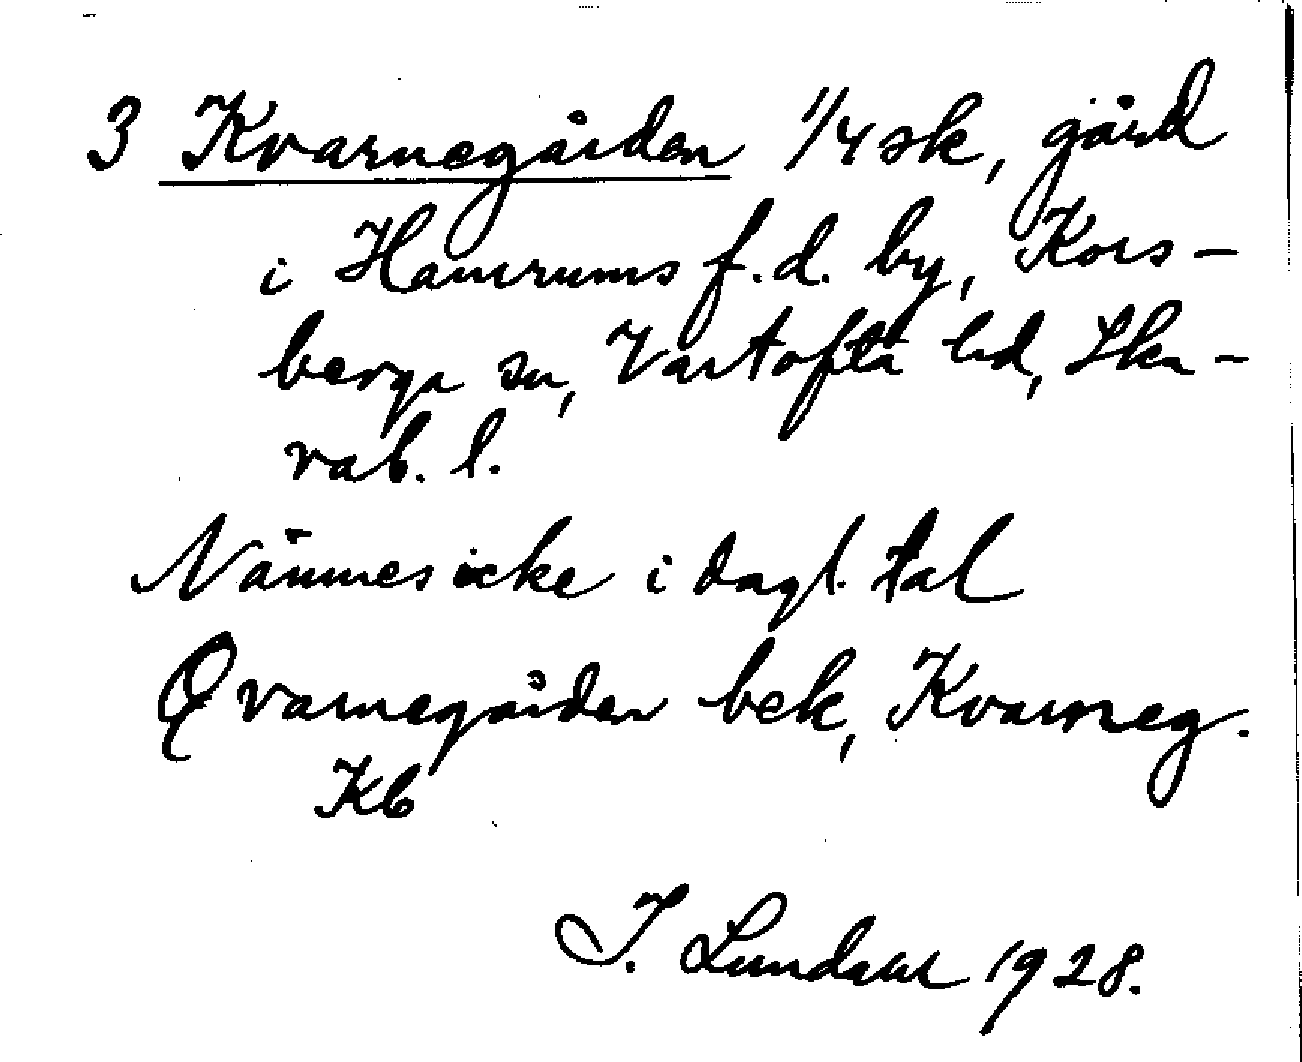 3 Kvarnegården 1/4 sk, gård
i Hamrums f.d. by, Kors-
berga sn, Vartofta hd, Ska-
rab. l.
Nämnes icke i dagl. tal
Qvarnegården bek, Kvarneg.
Kb
I. Lundahl 1928.